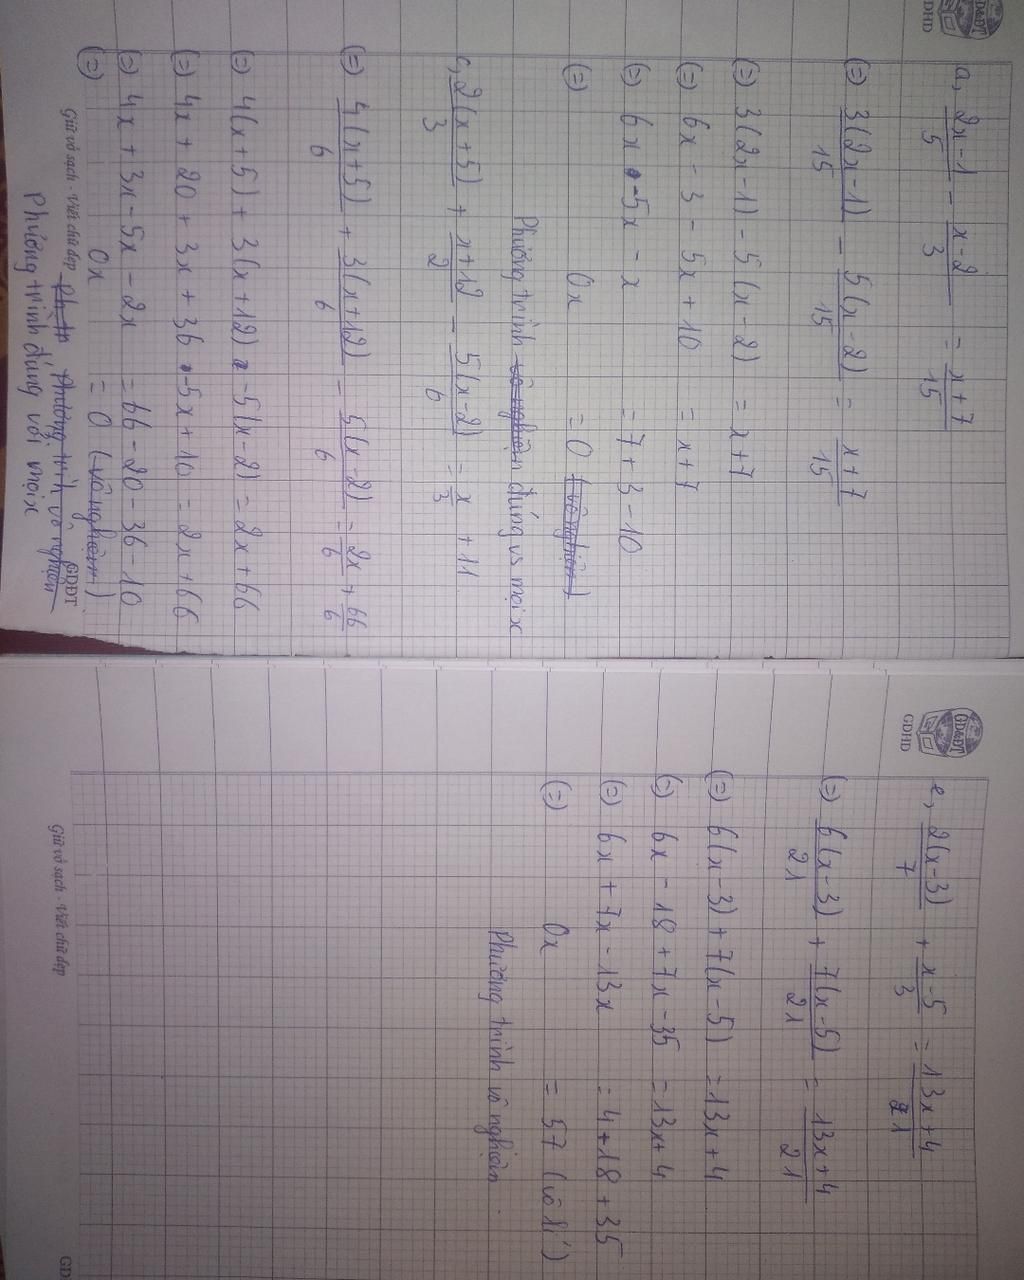 GD&ĐT
GDHD
a, (2x-1)/5 - (x-2)/3 = (x+7)/15
(=) 3(2x-1)/15 - 5(x-2)/15 = (x+7)/15
(=) 3(2x-1) - 5(x-2) = x+7
(=) 6x - 3 - 5x + 10 = x+7
(=) 6x - 5x - x = 7+3-10
(=) 0x = 0 (vô nghiệm)
Phương trình vô nghiệm đúng vs mọi x
c, 2(x+5)/3 + (x+12)/2 - 5(x-2)/6 = x/3 + 11
(=) 4(x+5)/6 + 3(x+12)/6 - 5(x-2)/6 = 2x/6 + 66/6
(=) 4(x+5) + 3(x+12) - 5(x-2) = 2x+66
(=) 4x + 20 + 3x + 36 - 5x + 10 = 2x+66
(=) 4x + 3x - 5x - 2x = 66-20-36-10
(=) 0x = 0 (vô nghiệm)
Giữ vở sạch - Viết chữ đẹp
Phương trình vô nghiệm
GDĐT
Phương trình đúng với mọi x
GD&ĐT
GDHD
e, 2(x-3)/7 + (x-5)/3 = (13x+4)/21
(=) 6(x-3)/21 + 7(x-5)/21 = (13x+4)/21
(=) 6(x-3) + 7(x-5) = 13x+4
(=) 6x - 18 + 7x - 35 = 13x+4
(=) 6x + 7x - 13x = 4+18+35
(=) 0x = 57 (vô lí)
Phương trình vô nghiệm.
Giữ vở sạch - Viết chữ đẹp
GD